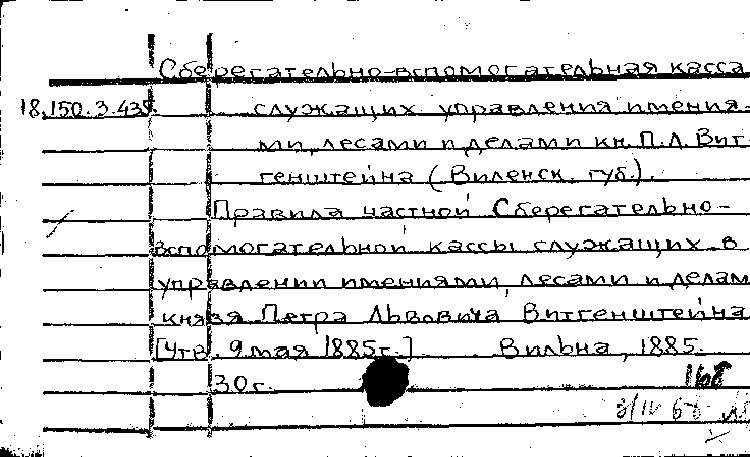 Сберегательно-вспомогательная касса
18.150.3.435. служащих управления имения-
ми, лесами и делами кн. П.Л. Вит-
генштейна (Виленск. губ.).
Правила частной Сберегательно-
вспомогательной кассы служащих в
управлении имениями, лесами и делам
князя Петра Львовича Витгенштейна
[Утв. 9 мая 1885г.] Вильна, 1885.
30 с.
168
3/IV 68